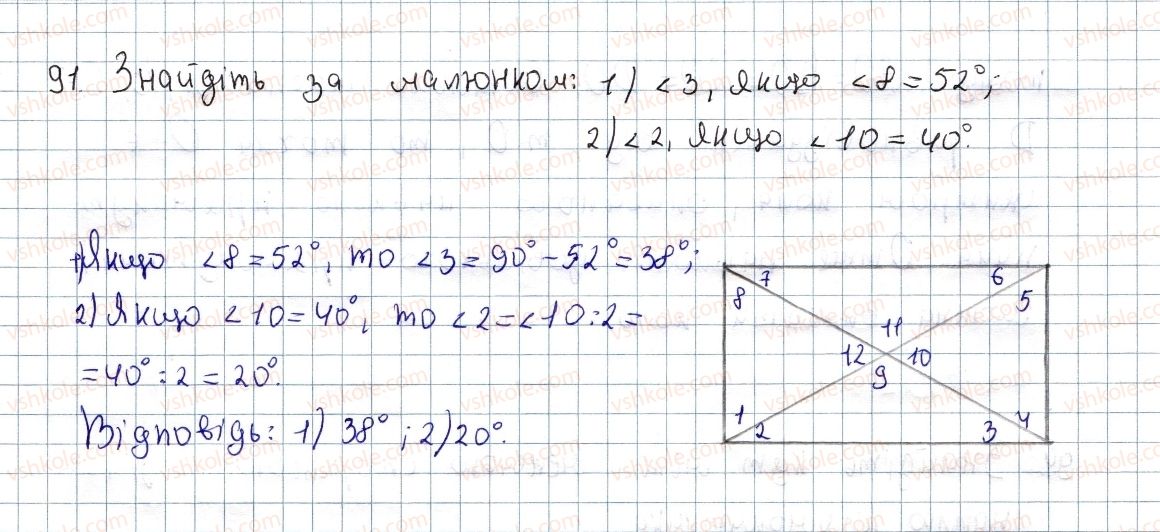 91 Знайдіть за малюнком: 1) <3, якщо <8 = 52°;
2) <2, якщо <10 = 40°.
1) Якщо <8 = 52°, то <3 = 90° - 52° = 38°;
2) Якщо <10 = 40°, то <2 = <10 : 2 =
= 40° : 2 = 20°.
Відповідь: 1) 38°; 2) 20°.
7 6
8 5
11
12 10
9
1 4
2 3